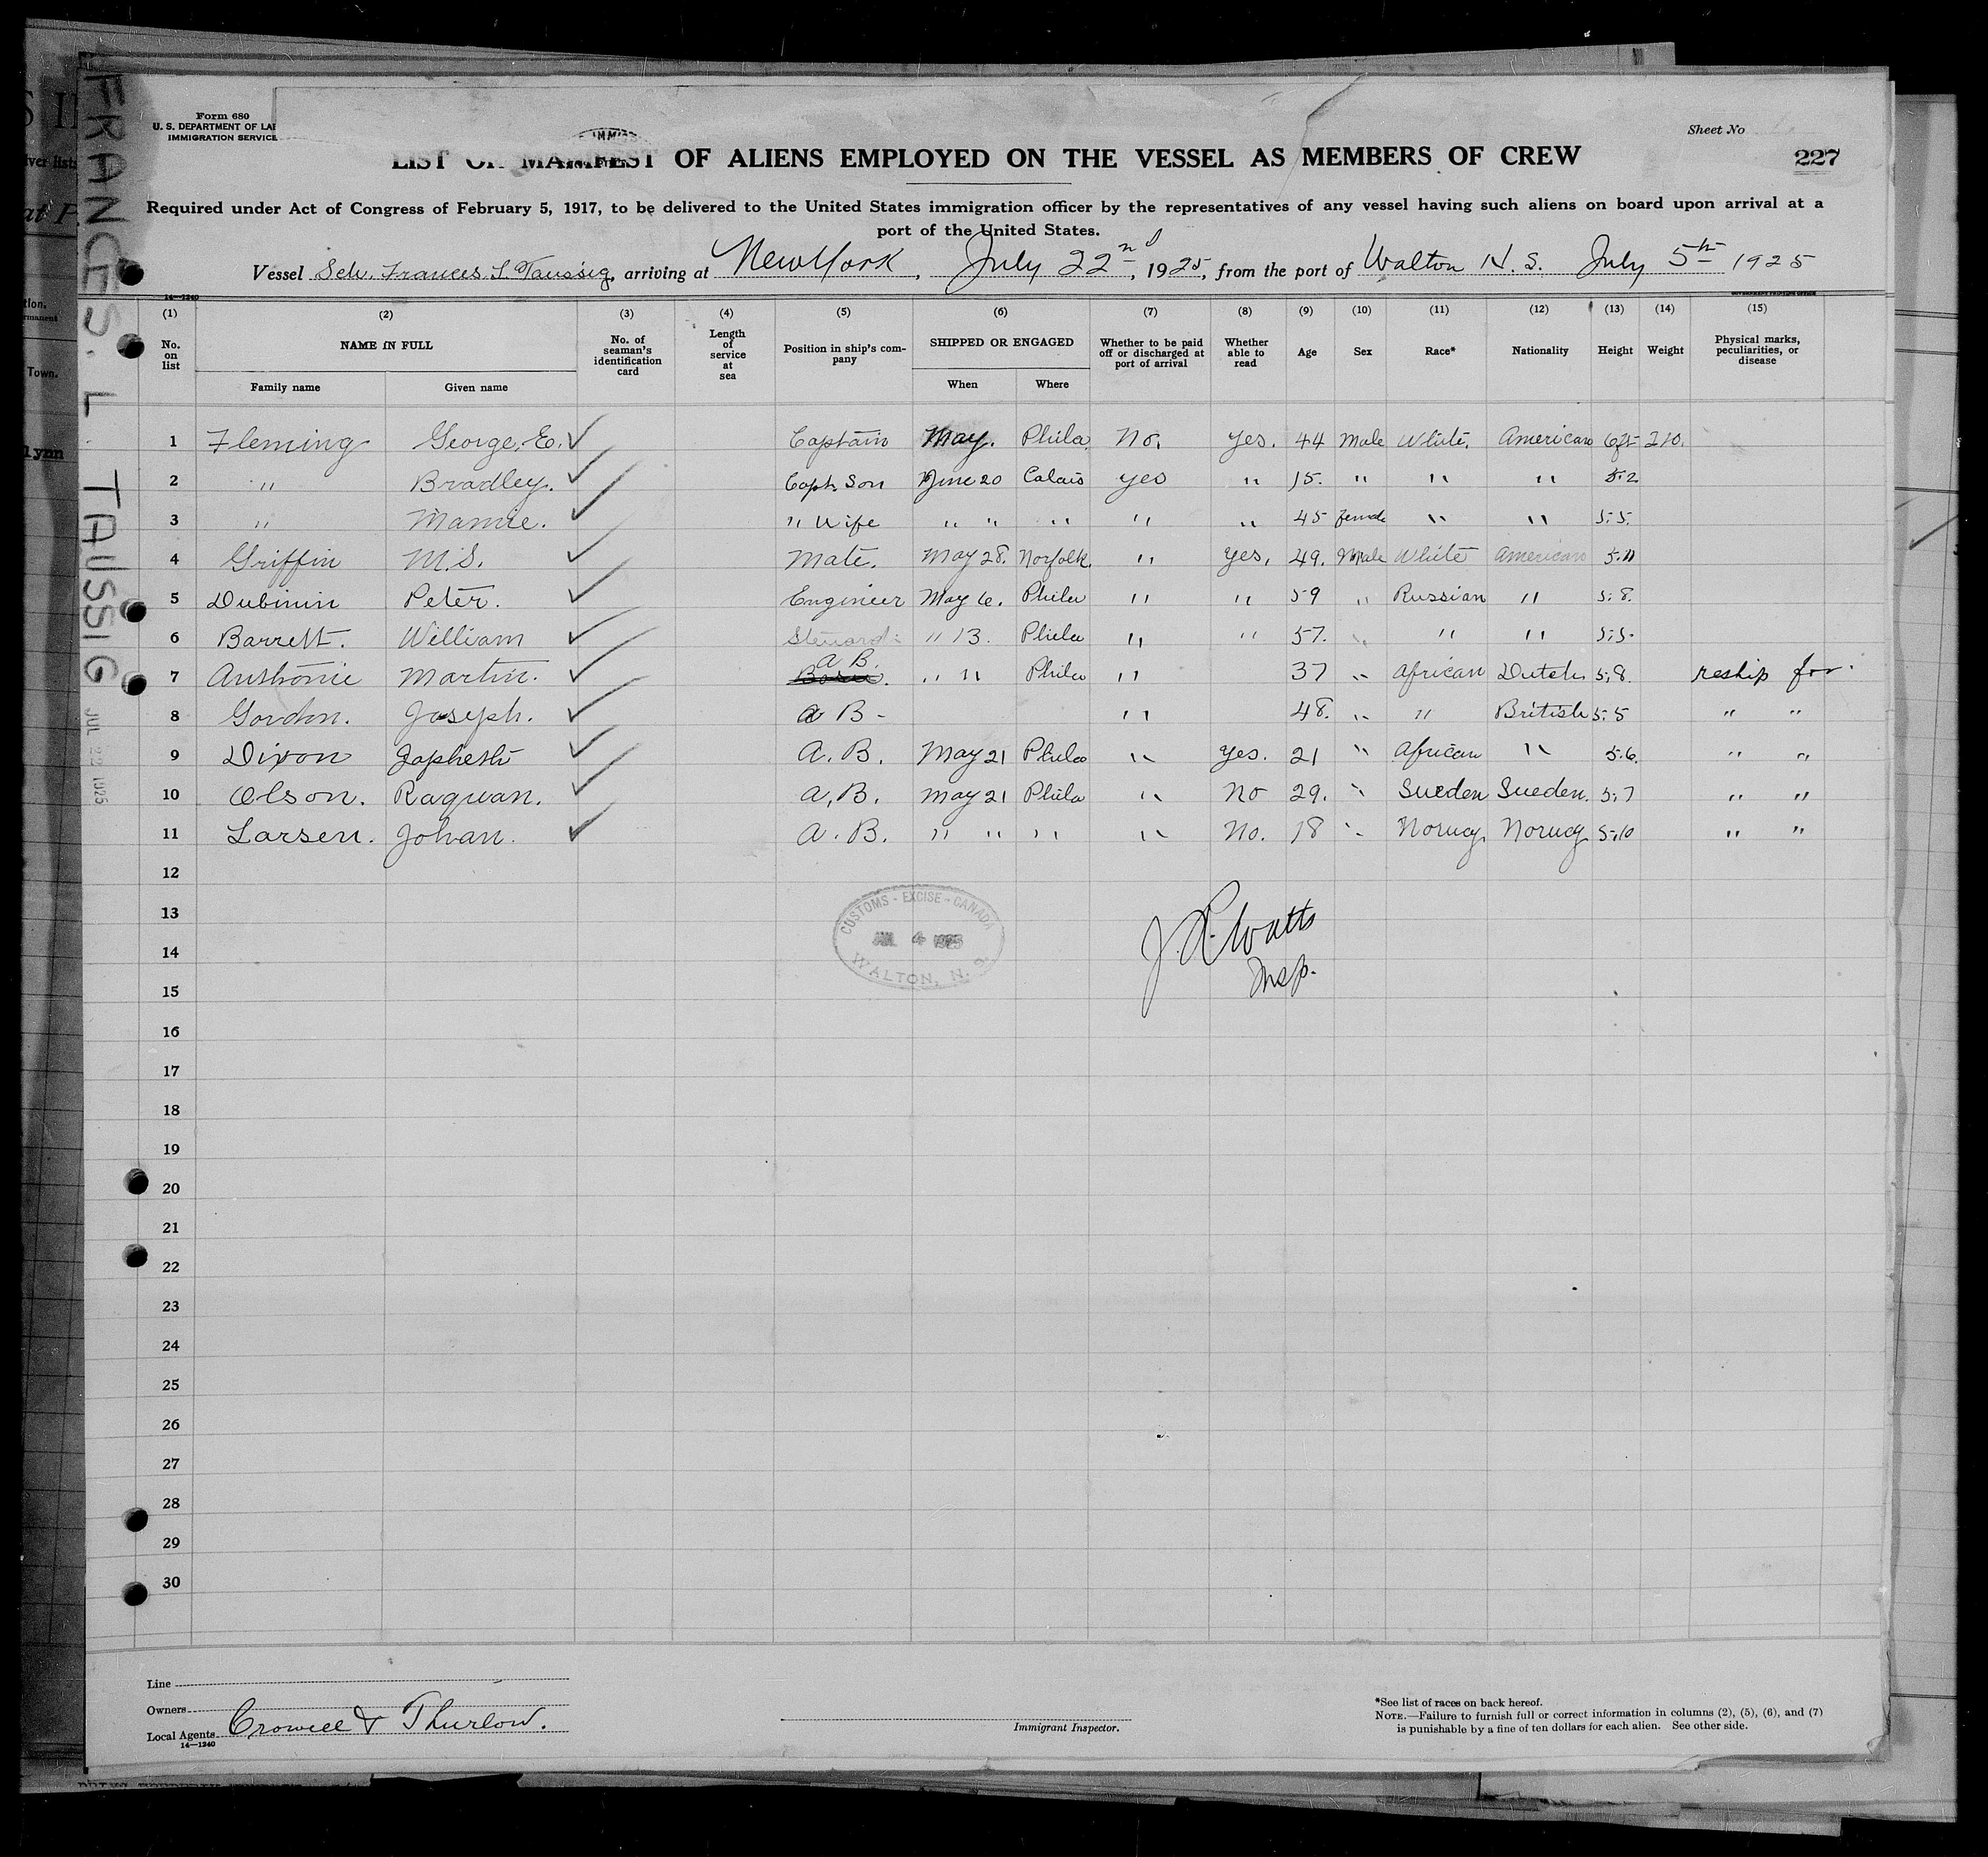 FRANCES. L. TAUSSIG
JUL 22 1925
Form 680
U. S. DEPARTMENT OF LA
IMMIGRATION SERVICE
Sheet No
227
LIST OR MANIFEST OF ALIENS EMPLOYED ON THE VESSEL AS MEMBERS OF CREW
Required under Act of Congress of February 5, 1917, to be delivered to the United States immigration officer by the representatives of any vessel having such aliens on board upon arrival at a
port of the United States.
Vessel Sch. Frances L. Taussig, arriving at New York, July 22nd, 1925, from the port of Walton N. S. July 5th 1925
14—1240
(1) (2) (3) (4) (5) (6) (7) (8) (9) (10) (11) (12) (13) (14) (15)
No. on list NAME IN FULL No. of seaman's identification card Length of service at sea Position in ship's company SHIPPED OR ENGAGED Whether to be paid off or discharged at port of arrival Whether able to read Age Sex Race* Nationality Height Weight Physical marks, peculiarities, or disease
Family name Given name When Where
1 Fleming George. E. ✓ Captain May. Phila. No. Yes. 44 Male White. American 6ft 210.
2 " Bradley. ✓ Capt. Son June 20 Calais yes " 15. " " " 5.2
3 " Mamie. ✓ " Wife " " " " " 45 female " " 5.5.
4 Griffin M.S. ✓ Mate. May 28. Norfolk. " Yes. 49. Male White American 5.11
5 Dubinin Peter. ✓ Engineer May 6. Phila " " 59 " Russian " 5.8.
6 Barrett. William ✓ Steward. " 13. Phila " " 57. " " " 5.5.
7 Anthonie Martin. ✓ A B. " " Phila " 37 " African Dutch 5.8. reship for.
8 Gordon. Joseph. ✓ A B - " 48. " " British 5.5 " "
9 Dixon Japheth ✓ A. B. May 21 Phila " Yes. 21 " African " 5.6. " "
10 Olson. Raguan. ✓ A. B. May 21 Phila " No 29. " Sueden Sueden. 5.7 " "
11 Larsen. Johan. ✓ A. B. " " " " No. 18 " Norwy Norwy 5.10 " "
12
13
14
15
16
17
18
19
20
21
22
23
24
25
26
27
28
29
30
CUSTOMS - EXCISE - CANADA
4 1925
WALTON, N. S.
J. R. Watts
Insp.
Line
Owners
Local Agents Crowell & Thurlow.
14—1240
Immigrant Inspector.
*See list of races on back hereof.
NOTE.—Failure to furnish full or correct information in columns (2), (5), (6), and (7)
is punishable by a fine of ten dollars for each alien. See other side.